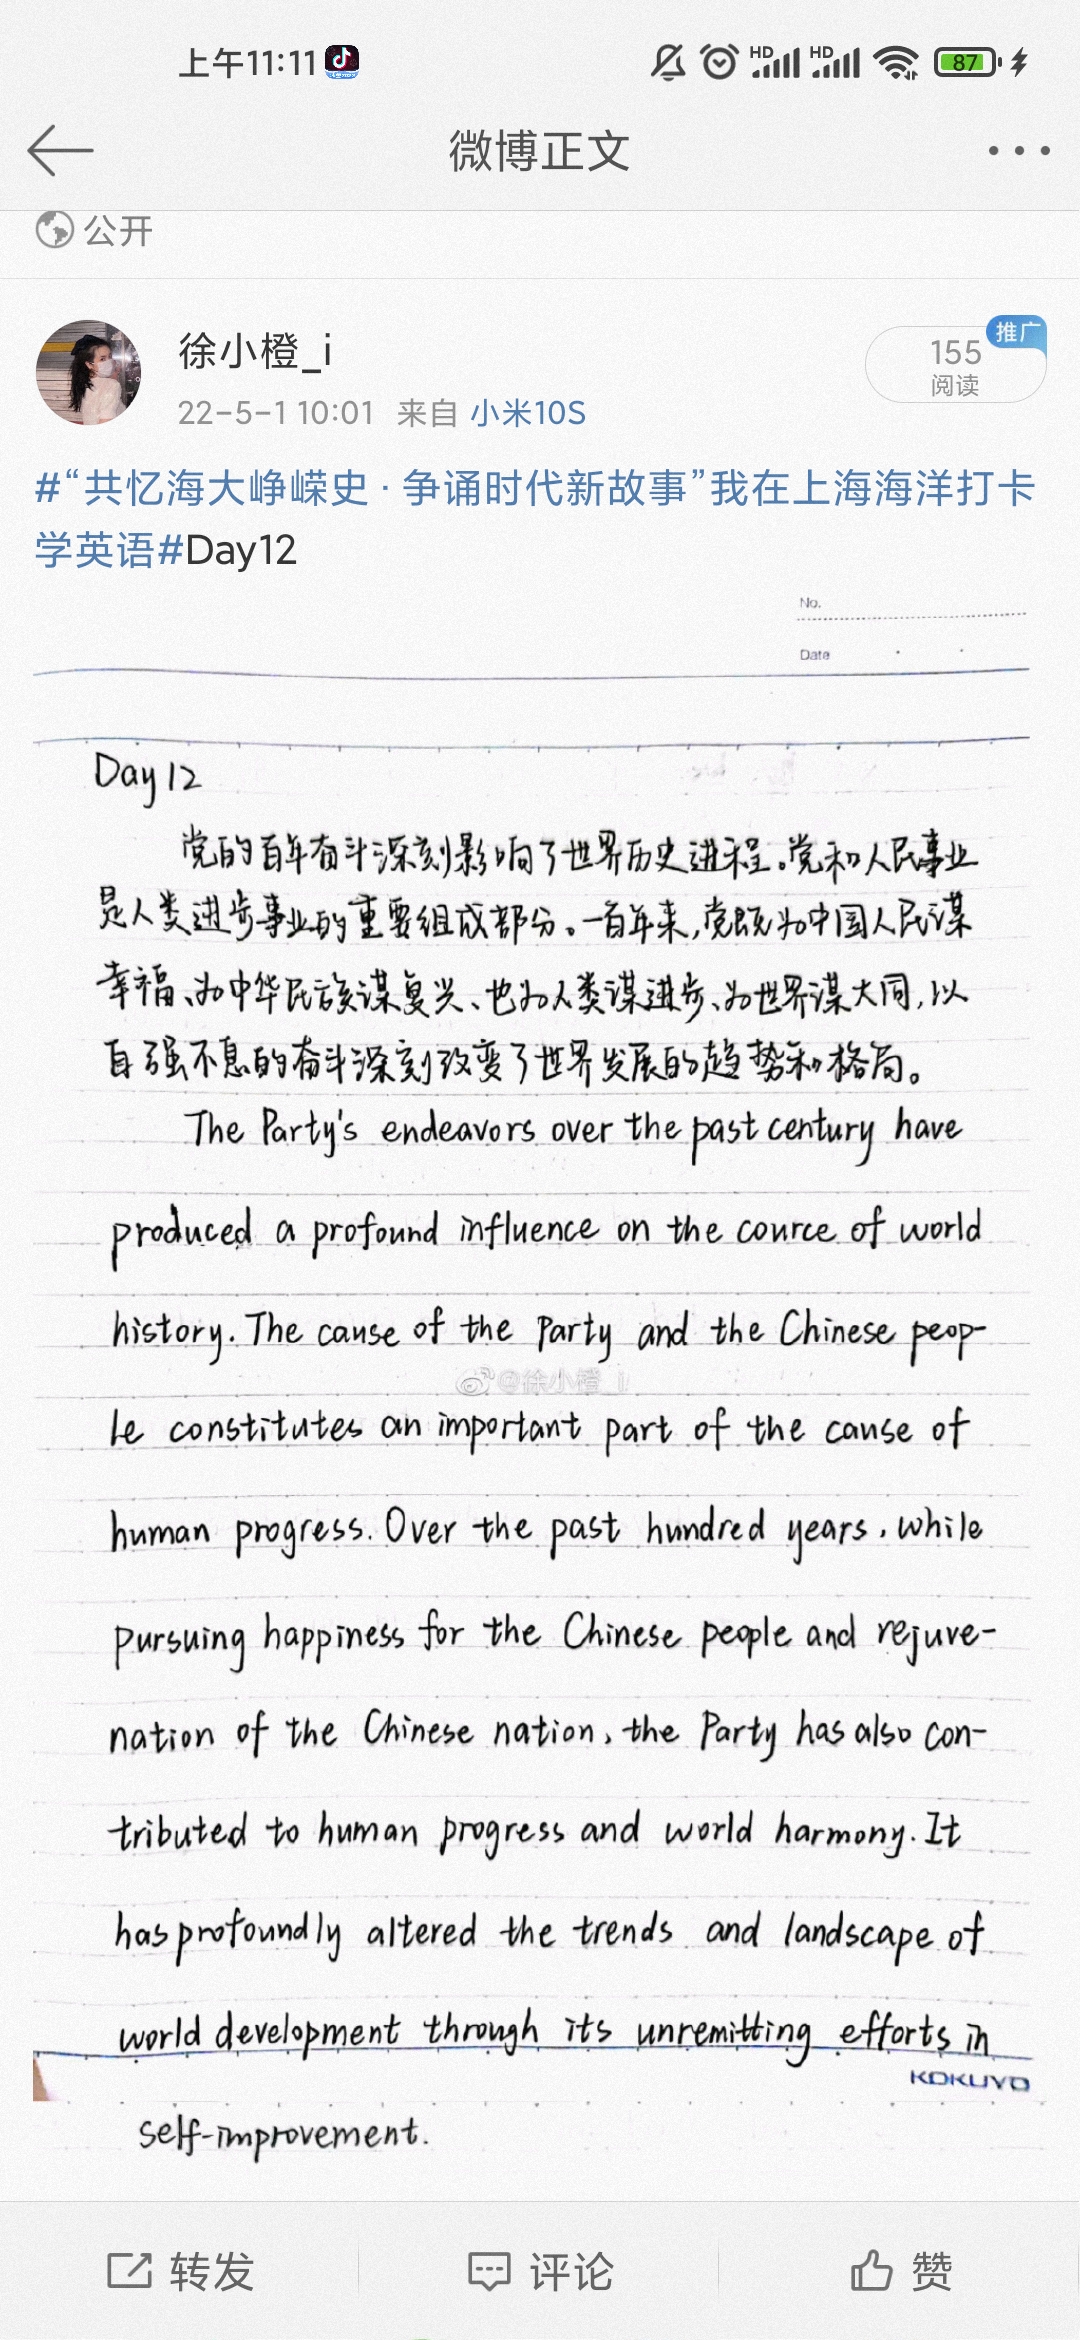 上午11:11
HD HD 87
微博正文
公开
徐小橙_i
推广
155
阅读
22-5-1 10:01 来自 小米10S
#“共忆海大峥嵘史·争诵时代新故事”我在上海海洋打卡
学英语#Day12
No.
Date
Day 12
党的百年奋斗深刻影响了世界历史进程。党和人民事业
是人类进步事业的重要组成部分。一百年来,党既为中国人民谋
幸福、为中华民族谋复兴、也为人类谋进步、为世界谋大同,以
自强不息的奋斗深刻改变了世界发展的趋势和格局。
The Party's endeavors over the past century have
produced a profound influence on the cource of world
history. The cause of the Party and the Chinese peop-
@徐小橙_i
le constitutes an important part of the cause of
human progress. Over the past hundred years, while
pursuing happiness for the Chinese people and rejuve-
nation of the Chinese nation, the Party has also con-
tributed to human progress and world harmony. It
has profoundly altered the trends and landscape of
world development through its unremitting efforts in
KOKUYO
self-improvement.
转发 评论 赞